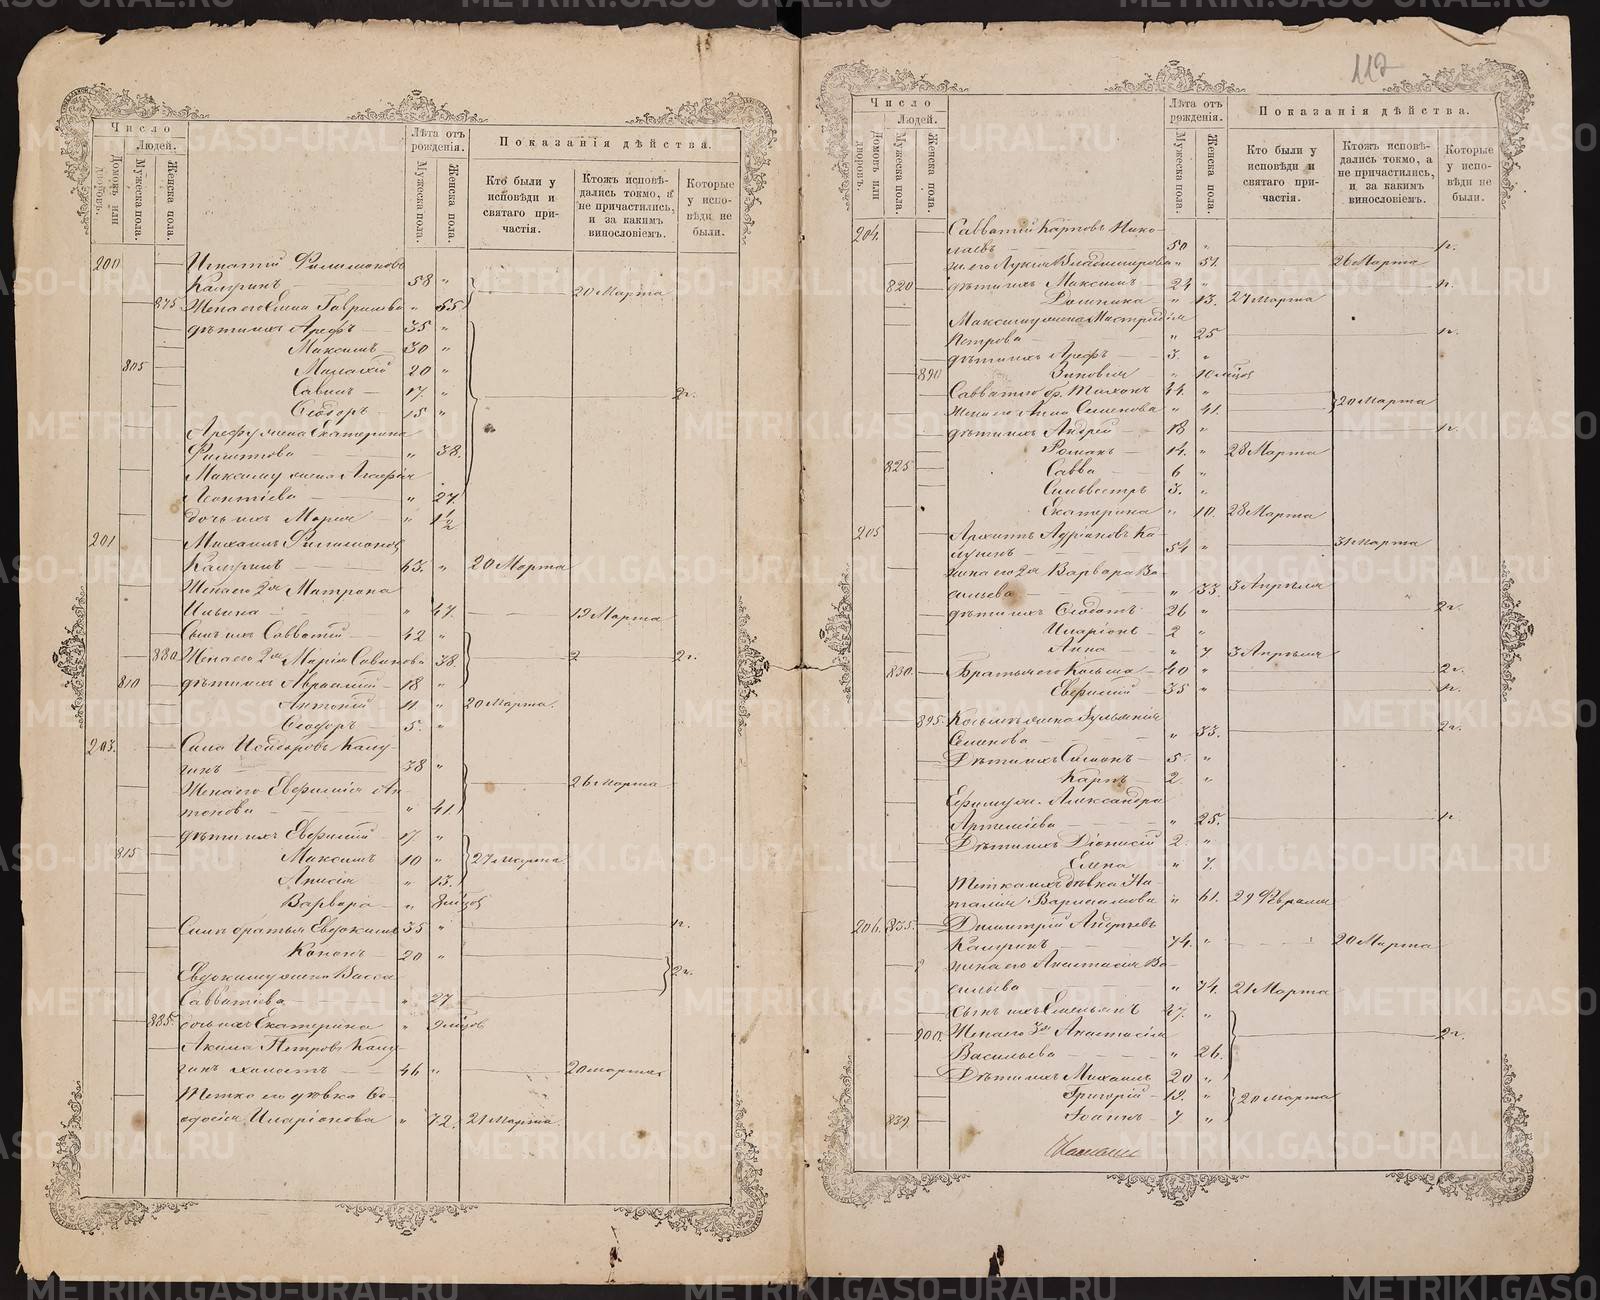 117
Число
Людей.
Домовъ или дворовъ.
Мужеска пола.
Женска пола.
Лѣта отъ рожденія.
Мужеска пола.
Женска пола.
Показанія дѣйства.
Кто были у исповѣди и святаго причастія.
Ктожъ исповѣдались токмо, а не причастились, и за какимъ винословіемъ.
Которые у исповѣди не были.
200 Игнатій Филимоновъ
Калугинъ 58 "
875 Жена его Елена Гаврилова " 55 20 Марта
дѣти ихъ Арефъ 35 "
Максимъ 30 "
805 20 "
Савинъ 17 "
Ѳеодоръ 15 "
Арефу жена Екатерина
Филиппова " 38.
Максиму жена Агафія
Леонтіева " 27
дочь ихъ Марія " 1½
201 Михаилъ Филимоновъ
Калугинъ 63. " 20 Марта
Жена его 2я Матрона
Ильина " 47.
Сынъ ихъ Савватій 42 "
880 Жена его 2я Марія Савинова " 38.
810 дѣти ихъ Авраамій 18 "
Антоній 11. " 20 Марта.
Ѳеодоръ 5. "
203. Сила Исидоровъ Калу-
гинъ 38 "
26 Марта
Жена его Евфимія Ан-
тонова " 41.
дѣти ихъ Евфимій 17. "
815 Максимъ 10 " 27 Марта
Анисія " 13.
Варвара "
Силы братья Евдокимъ 35 "
Кононъ 20 "
Евдокиму жена Васса
Савватіева " 27
885 дочь ихъ Екатерина "
Акила Петровъ Калу-
гинъ холостъ 46 " 20 марта
Тетка его дѣвка Ѳе-
одосія Иларіонова " 72. 21 Марта
Число
Людей.
Домовъ или дворовъ.
Мужеска пола.
Женска пола.
Лѣта отъ рожденія.
Мужеска пола.
Женска пола.
Показанія дѣйства.
Кто были у исповѣди и святаго причастія.
Ктожъ исповѣдались токмо, а не причастились, и за какимъ винословіемъ.
Которые у исповѣди не были.
204. Савватій Карповъ Нико-
лаевъ 50 "
жена его Лукія Владимирова " 51. 26 Марта
820 дѣти ихъ Максимъ 24 "
Домника " 13. 27 Марта
Максиму жена
Петрова " 25
дѣти ихъ Арефъ 3. "
890 Зиновія " 10 мѣсяц
Савватію бр. Тихонъ 44. "
20 Марта
Жена его Анна Семенова " 41.
дѣти ихъ Андрей 18 "
Романъ 14. " 28 Марта
825 Савва 6 "
Сильвестръ 3. "
Екатерина " 10. 28 Марта
205 Архиппъ Адріановъ Ка-
лугинъ 54 " 31 Марта
жена его 2я Варвара Ва-
сильева " 33. 3 Апрѣля
дѣти ихъ Ѳеодотъ 26 "
Иларіонъ 2 "
Анна " 7 3 Апрѣля
830. Братья его Козьма 40 "
Евфимій 35 "
895. Козьмѣ жена Іуліанія
Семенова " 33.
Дѣти ихъ Симеонъ 5. "
Карпъ 2. "
Ефиму ж. Александра
Артеміева " 25.
Дѣти ихъ Діонисій 2. "
Елена " 7.
Тетка ихъ дѣвка На-
талія Варлаамова " 61. 29 Февраля
206. 835. Димитрій Андреевъ
Калугинъ 74. " 20 Марта
жена его Анастасія Ва-
сильева " 74. 21 Марта
сынъ ихъ Емельянъ 47. "
900. Жена его 3я Анастасія
Васильева " 26.
Дѣти ихъ Михаилъ 20 "
Григорій 12. "
20 Марта
839. Іоаннъ 7 "